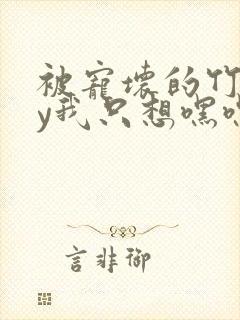 被寵壞的竹
y我只想嘿
言非御